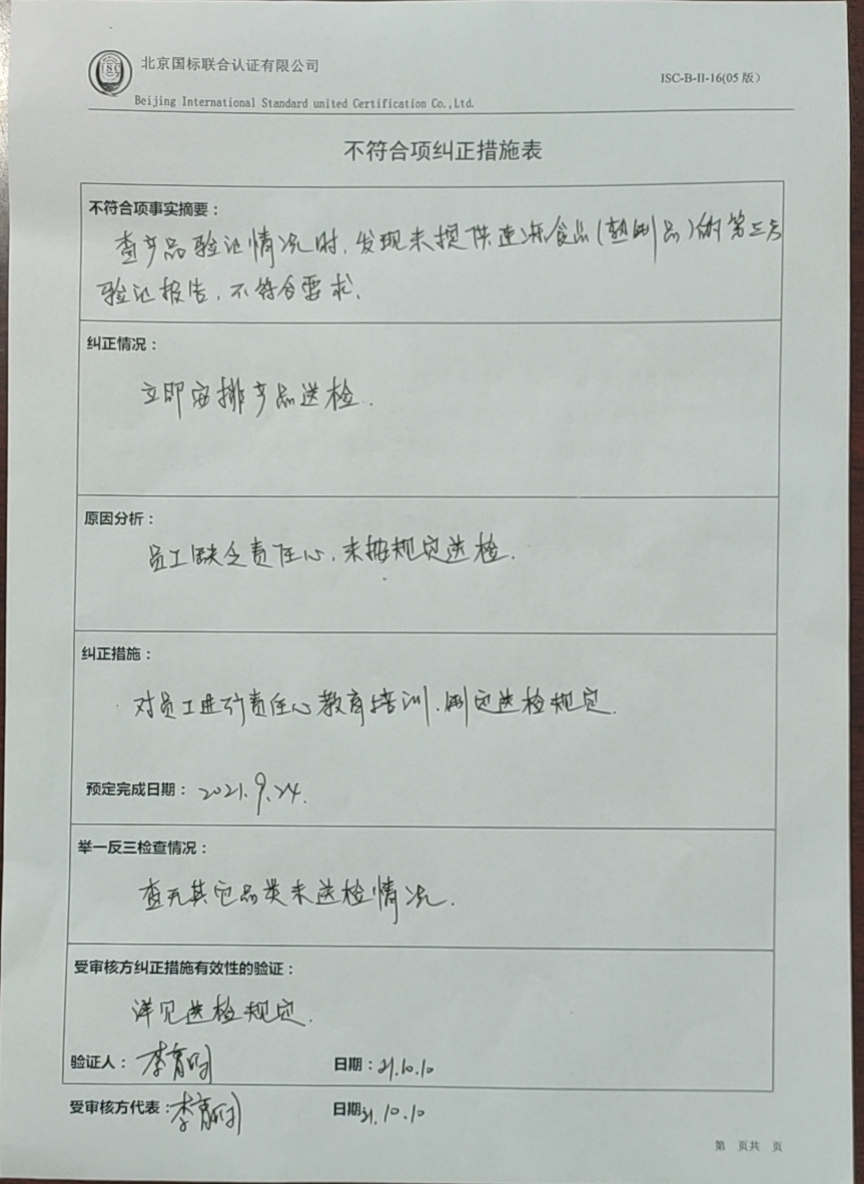 北京国标联合认证有限公司
JSC-B-II-16(05 版)
Beijing International Standard united Certification Co.,Ltd.
不符合项纠正措施表
不符合项事实摘要：
查产品验证情况时，发现未提供速冻食品(熟制品)的第三方
验证报告，不符合要求。
纠正情况：
立即安排产品送检.
原因分析：
员工缺乏责任心，未按规定送检.
纠正措施：
对员工进行责任心教育培训，制定送检规定.
预定完成日期：2021.9.24.
举一反三检查情况：
查无其它品类未送检情况.
受审核方纠正措施有效性的验证：
详见送检规定.
验证人： 日期：21.10.10
受审核方代表： 日期 21.10.10
第 页共 页